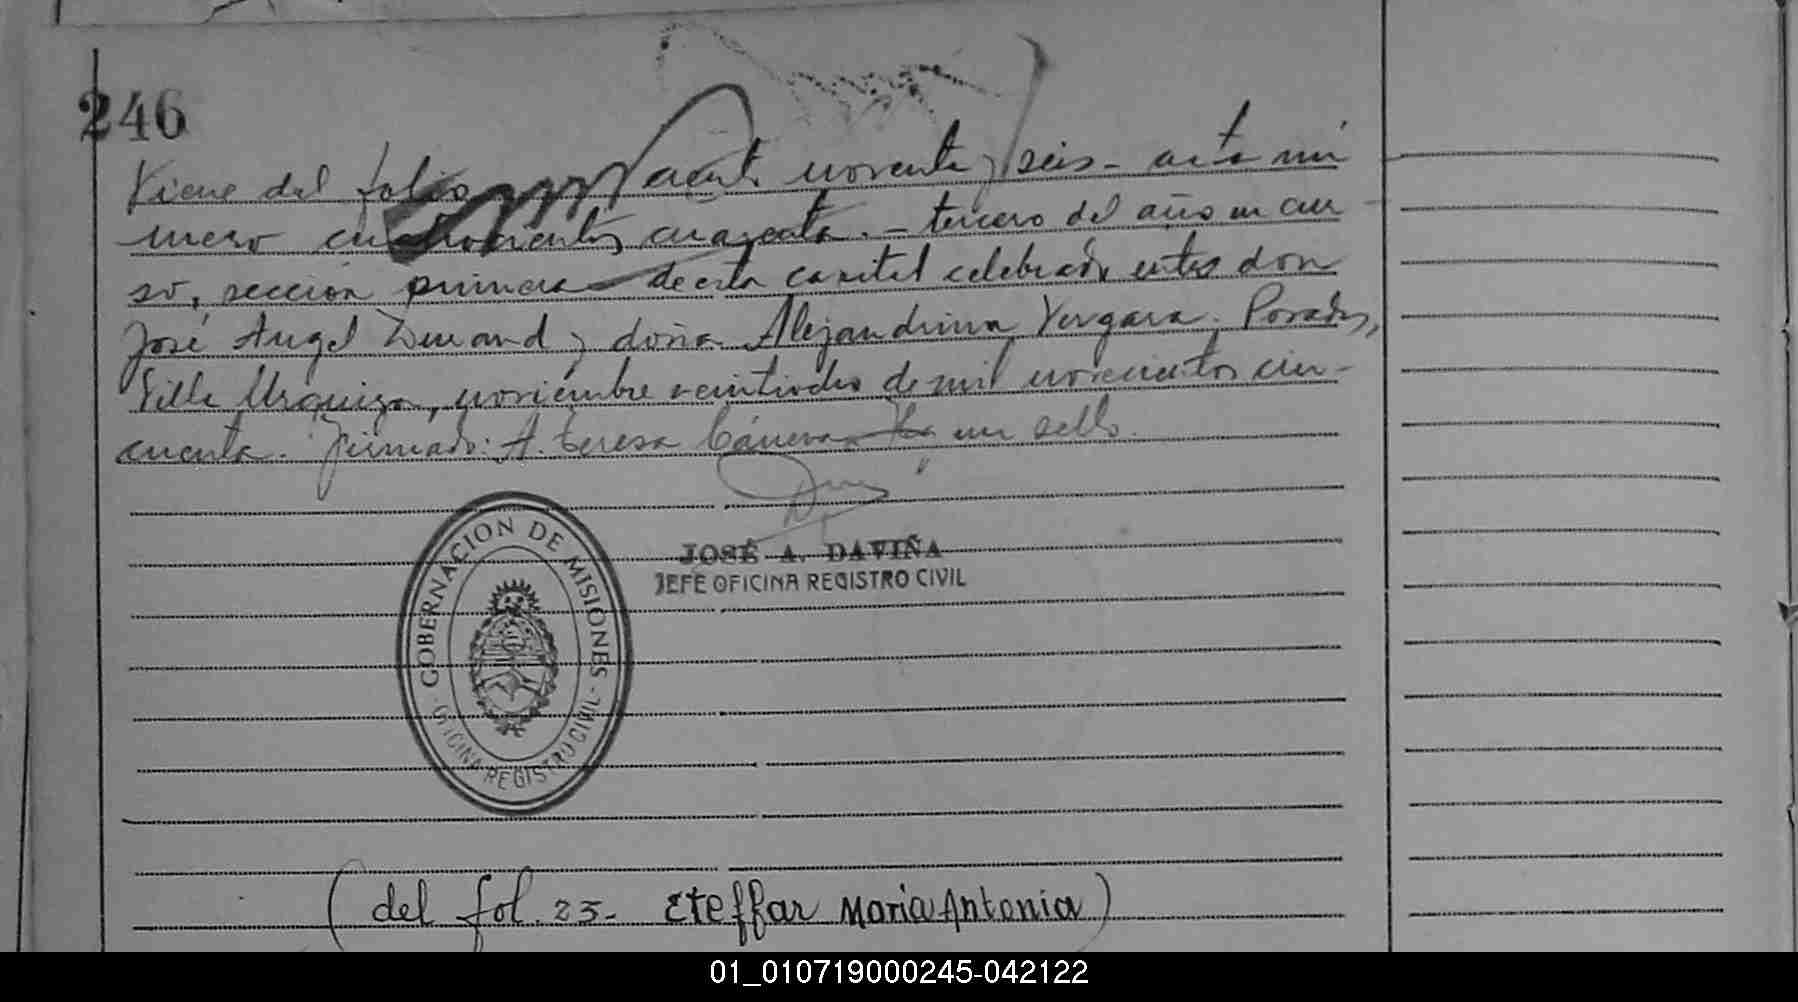 246
Viene del folio ciento noventa y seis - acta nú
mero cuatrocientos cuarenta. - tercero del año en cur
so, sección primera de esta capital celebrado entre don
José Angel Durand y doña Alejandrina Vergara. Posadas,
Villa Urquiza, noviembre veintiocho de mil novecientos cin-
cuenta. Firmado: A. Teresa un sello.
GOBERNACION DE MISIONES
OFICINA REGISTRO CIVIL
JOSÉ A. DAVIÑA
JEFE OFICINA REGISTRO CIVIL
(del fol. 23- Eteffar Maria Antonia)
01_010719000245-042122